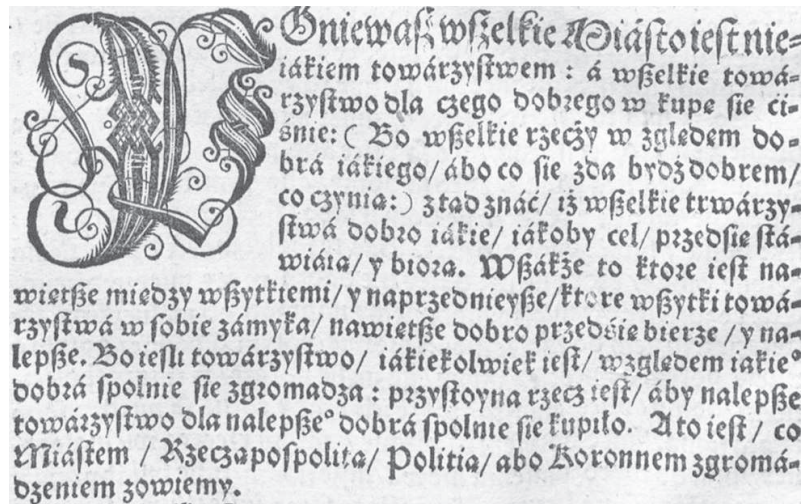 POniewaſz wſzelkie Miáſto ieſt nie=
iákiem towárzyſtwem : á wßelkie towá-
rzyſtwo dla cżego dobrego w kupę ſie ći-
śnie: ( Bo wßelkie rzecży w zględem do-
brá iákiego/ ábo co ſie zda bydź dobrem/
co czynią:) ztąd znáć/ iż wßelkie trwárzy-
ſtwá dobro iákie/ iákoby cel/ przedſię ſtá-
wiáią/ y biorą. Wßákże to ktore ieſt na-
więtße między wßytkiemi/ y naprzednieyße/ ktore wßytki towá-
rzyſtwá w ſobie zámyka/ nawiętße dobro przedśię bierze / y na-
lepße. Bo ieſli towárzyſtwo/ iákiekolwiek ieſt/ względem iakieº
dobrá ſpolnie ſie zgromadza : przyſtoyna rzecz ieſt/ áby nalepße
towárzyſtwo dla nalepßeº dobrá ſpolnie ſie kupiło. A to ieſt / co
Miáſtem / Rzecząpoſpolitą/ Politią/ abo Koronnem zgromá-
dzeniem zowiemy.